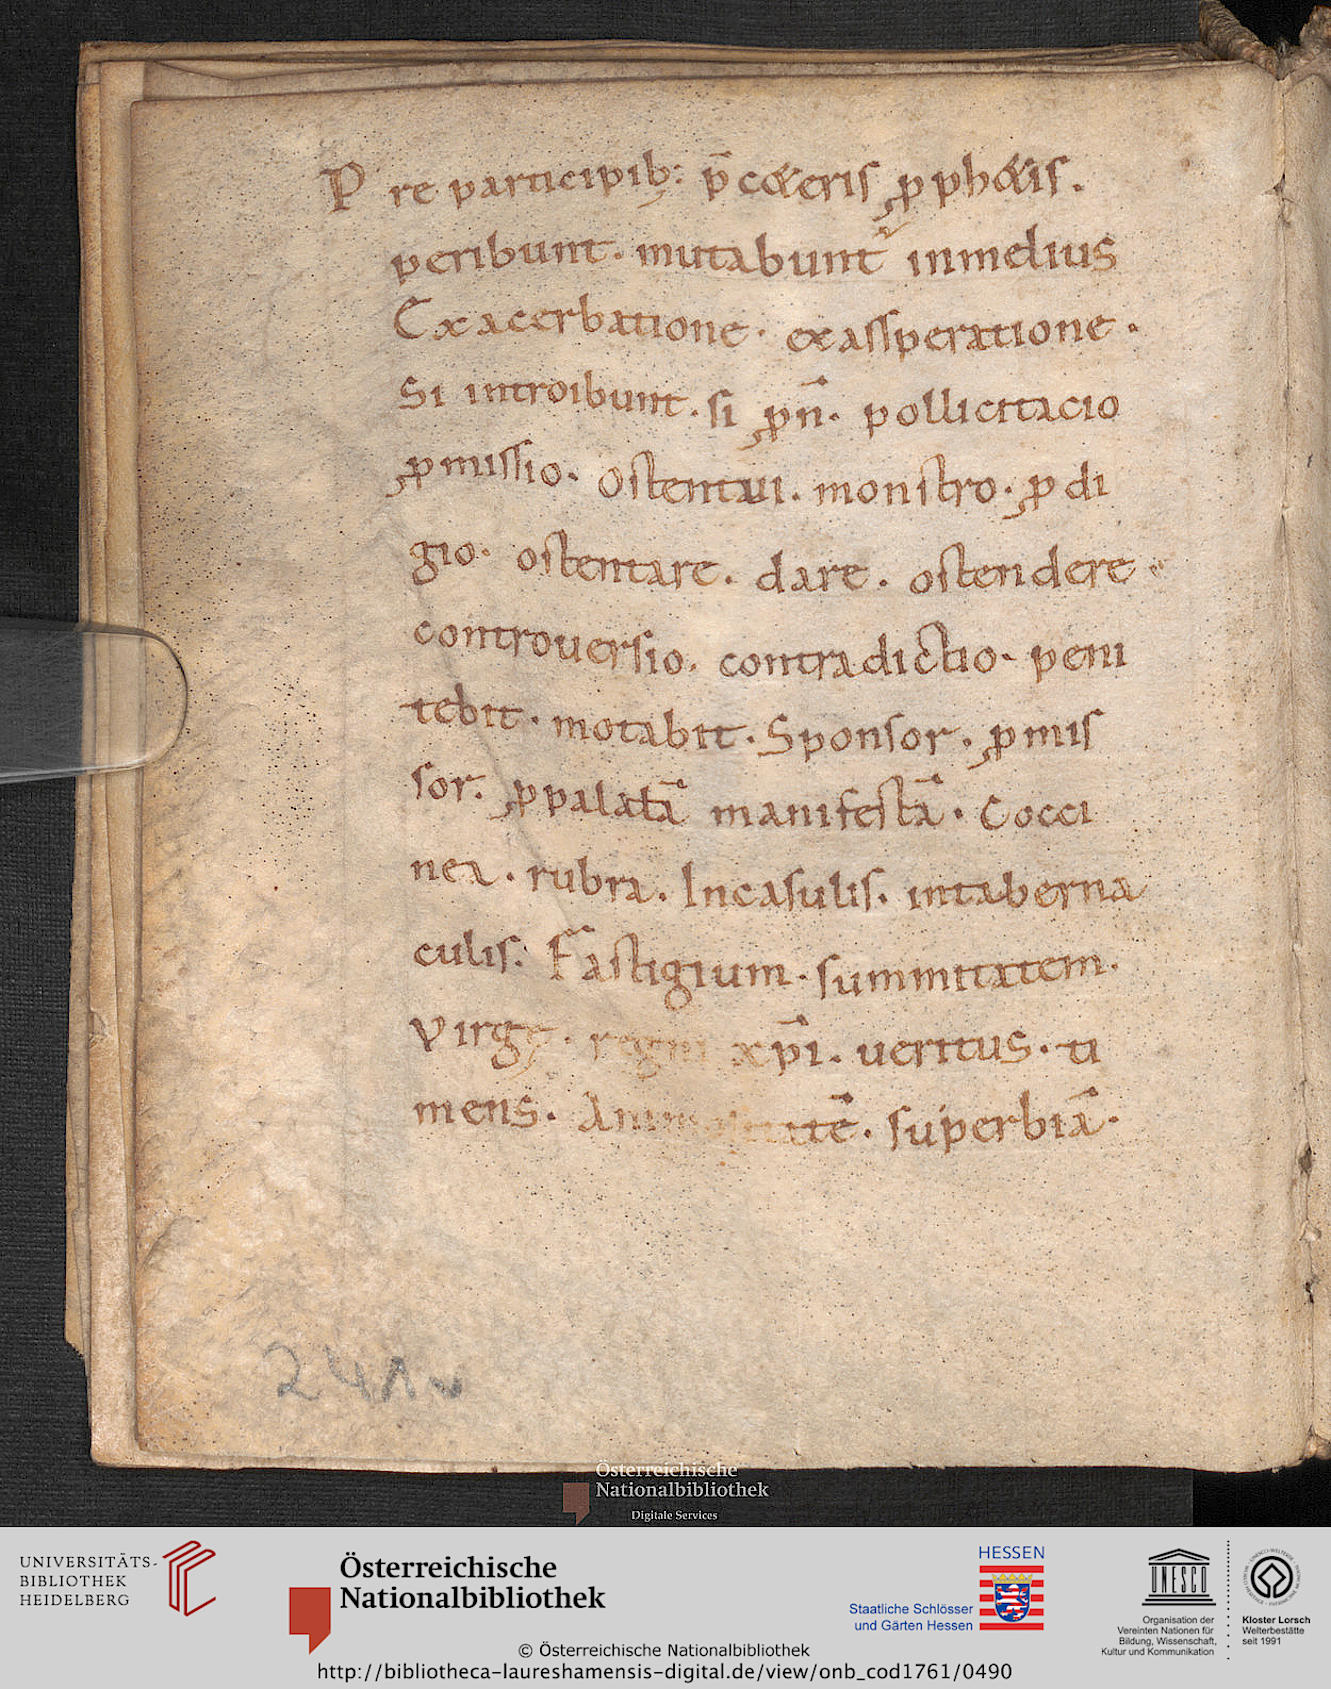 P re participib; p̄ ceteris ꝓphetis.
peribunt. mutabunt᷑ inmelius
Exacerbatione. exassperatione.
Si introibunt. si ꝓ n̄. pollicitacio
ꝓmissio. Ostentui. monstro. ꝓdi
gio. ostentare. dare. ostendere
controuersio. contradictio. peni
tebit. motabit. Sponsor. ꝓmis
sor. ꝓpalatā manifestā. Cocci
nea. rubra. Incasulis. intaberna
culis. Fastigium. summitatem.
Virgę. regni xp̄i. ueritus. ti
mens. superbiā.
241v
Österreichische
Nationalbibliothek
Digitale Services
UNIVERSITÄTS-
BIBLIOTHEK
HEIDELBERG
Österreichische
Nationalbibliothek
HESSEN
Staatliche Schlösser
und Gärten Hessen
UNESCO
Organisation der
Vereinten Nationen für
Bildung, Wissenschaft,
Kultur und Kommunikation
Kloster Lorsch
Welterbestätte
seit 1991
© Österreichische Nationalbibliothek
http://bibliotheca-laureshamensis-digital.de/view/onb_cod1761/0490